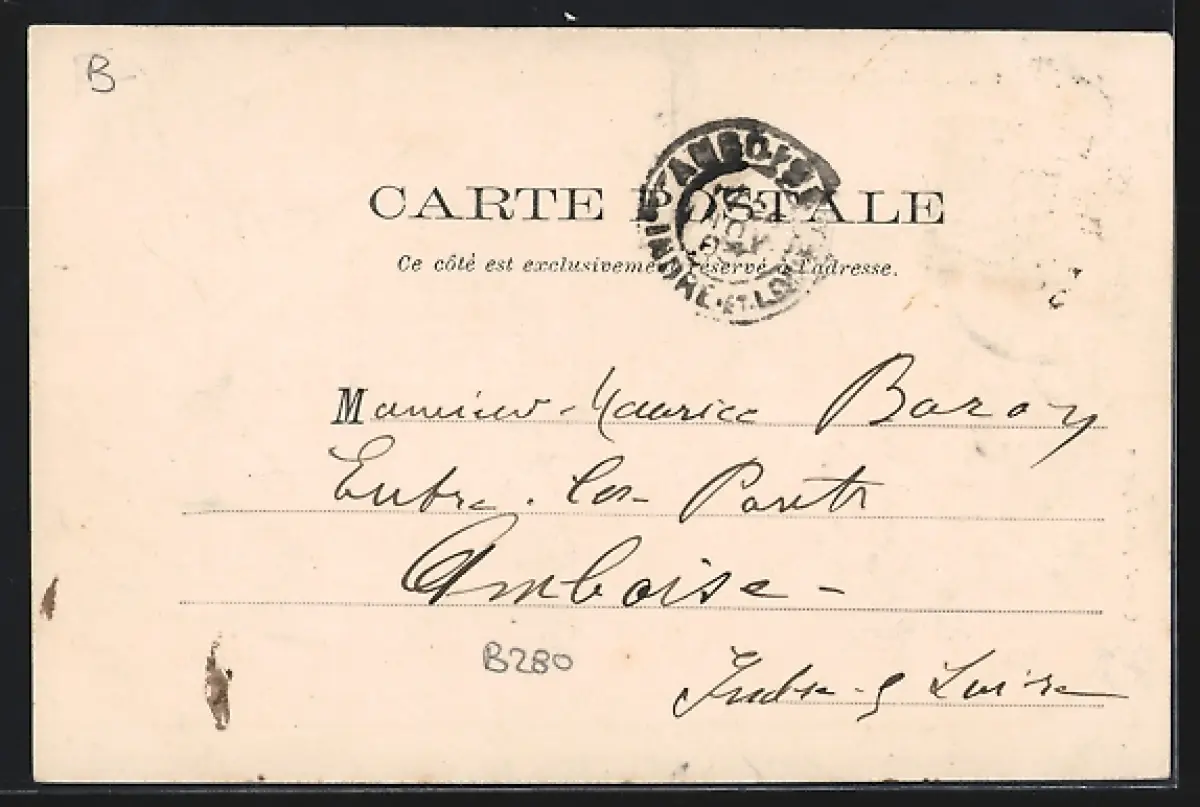 B-
CARTE POSTALE
Ce côté est exclusivement réservé à l'adresse.
AMBOISE
NOV
INDRE-ET-LOIRE
Monsieur Maurice Baroy
Entre-les-Ponts
Amboise -
B280
Indre & Loire